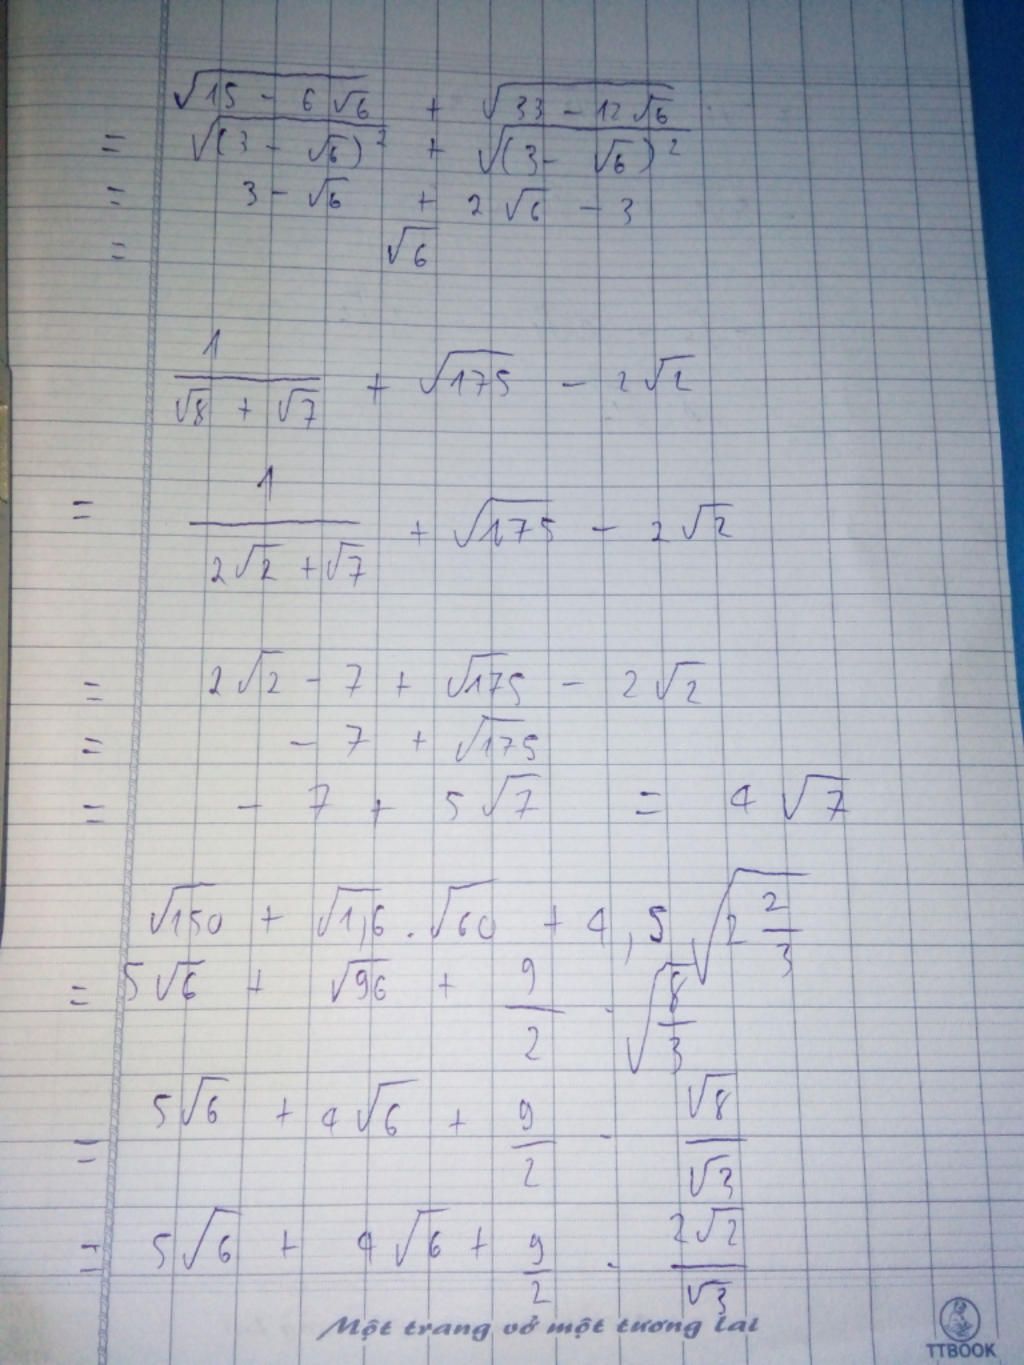 √15 - 6√6 + √33 - 12√6
= √(3 - √6)² + √(3 - √6)²
= 3 - √6 + 2√6 - 3
= √6
1/(√8 + √7) + √175 - 2√2
= 1/(2√2 + √7) + √175 - 2√2
= 2√2 - 7 + √175 - 2√2
= - 7 + √175
= - 7 + 5√7 = 4√7
√150 + √1,6 . √60 + 4,5 . √2 2/3
= 5√6 + √96 + 9/2 . √8/3
= 5√6 + 4√6 + 9/2 . √8/√3
= 5√6 + 4√6 + 9/2 . 2√2/√3
Một trang vở một tương lai
TTBOOK